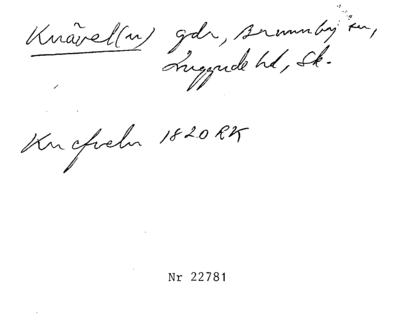 Knävel(n) gdr, Brunnby sn,
Luggude hd, Sk.
Knefveln 1820 RK
Nr 22781